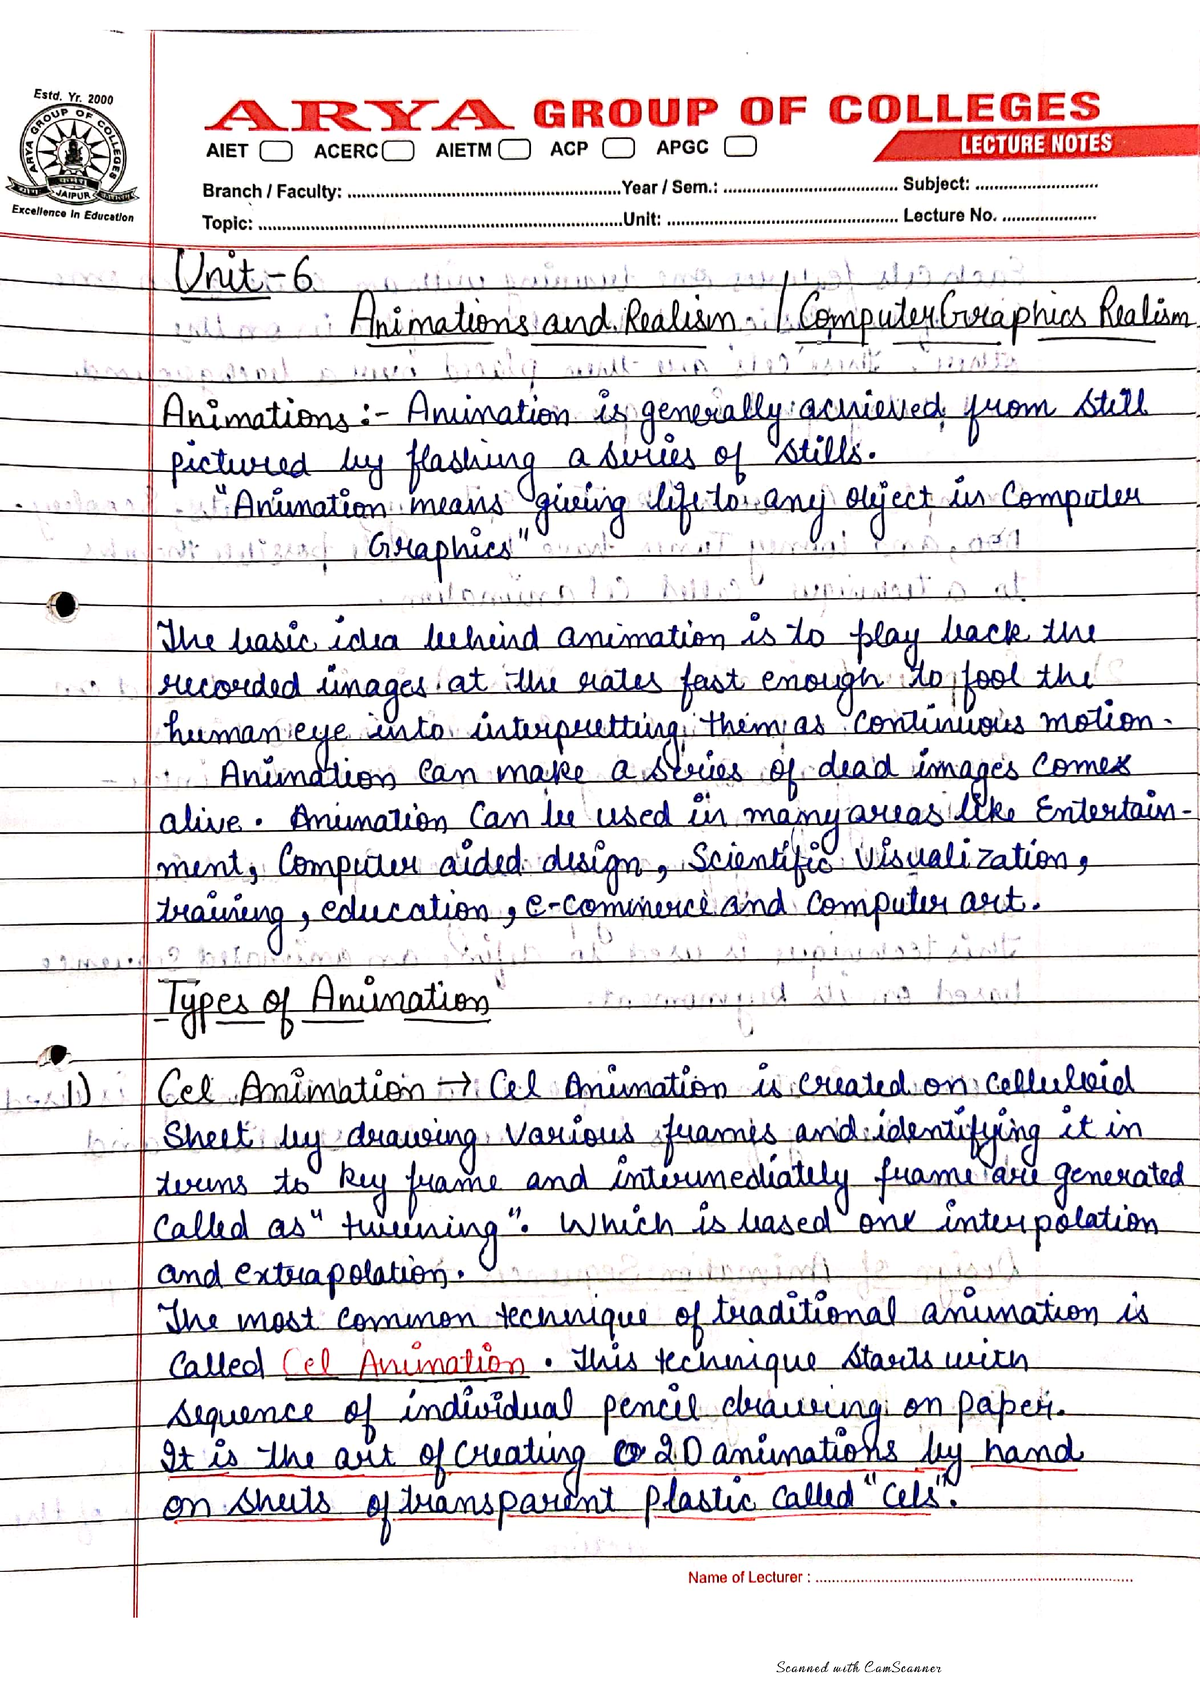 Estd. Yr. 2000
ARYA GROUP OF COLLEGES
JAIPUR
Excellence in Education
ARYA GROUP OF COLLEGES
AIET ACERC AIETM ACP APGC
LECTURE NOTES
Branch / Faculty: Year / Sem.: Subject:
Topic: Unit: Lecture No.
Unit - 6
Animations and Realism. / Computer Graphics Realism
Animations :- Animation is generally achieved from still
pictured by flashing a series of stills.
"Animation means giving life to any object in Computer
Graphics"
The basic idea behind animation is to play back the
recorded images at the rates fast enough to fool the
human eye into interpretting them as continuous motion.
Animation can make a series of dead images comes
alive. Animation can be used in many areas like Entertain-
ment, Computer aided design, Scientific Visualization,
training, education, e-commerce and computer art.
Types of Animation
1) Cel Animation → Cel Animation is created on celluloid
Sheet by drawing various frames and identifying it in
terms to key frame and intermediately frame are generated
called as "tweening". Which is based one interpolation
and extrapolation.
The most common technique of traditional animation is
called Cel Animation. This technique starts with
sequence of individual pencil drawing on paper.
It is the art of creating 2D animations by hand
on sheets of transparent plastic called "Cels".
Name of Lecturer :
Scanned with CamScanner